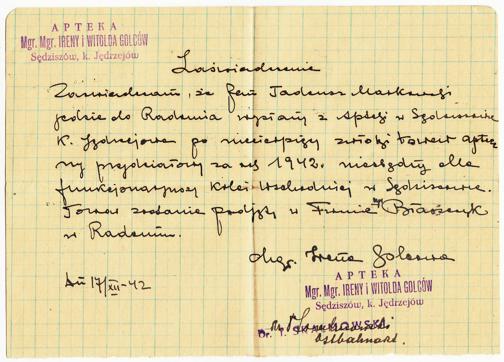 APTEKA
Mgr. Mgr. IRENY i WITOLDA GOLCÓW
Sędziszów, k. Jędrzejów
Zaświadczenie
Zaświadczam, że Pan Tadeusz Markowski
jedzie do Radomia wysłany z Apteki w Sędziszowie
K. Jędrzejowa po niecierpiący zwłoki towar aptecz
ny przydziałowy za 1942. niezbędny dla
funkcjonariuszy Kolei wschodniej w Sędziszowie.
Towar zostanie podjęty w Firmie Błaszczyk
w Radomiu.
Mgr. Irena Golcowa
Dn 17/XII-42
APTEKA
Mgr. Mgr. IRENY i WITOLDA GOLCÓW
Sędziszów, k. Jędrzejów
Dr. T.
Ostbahnarzt